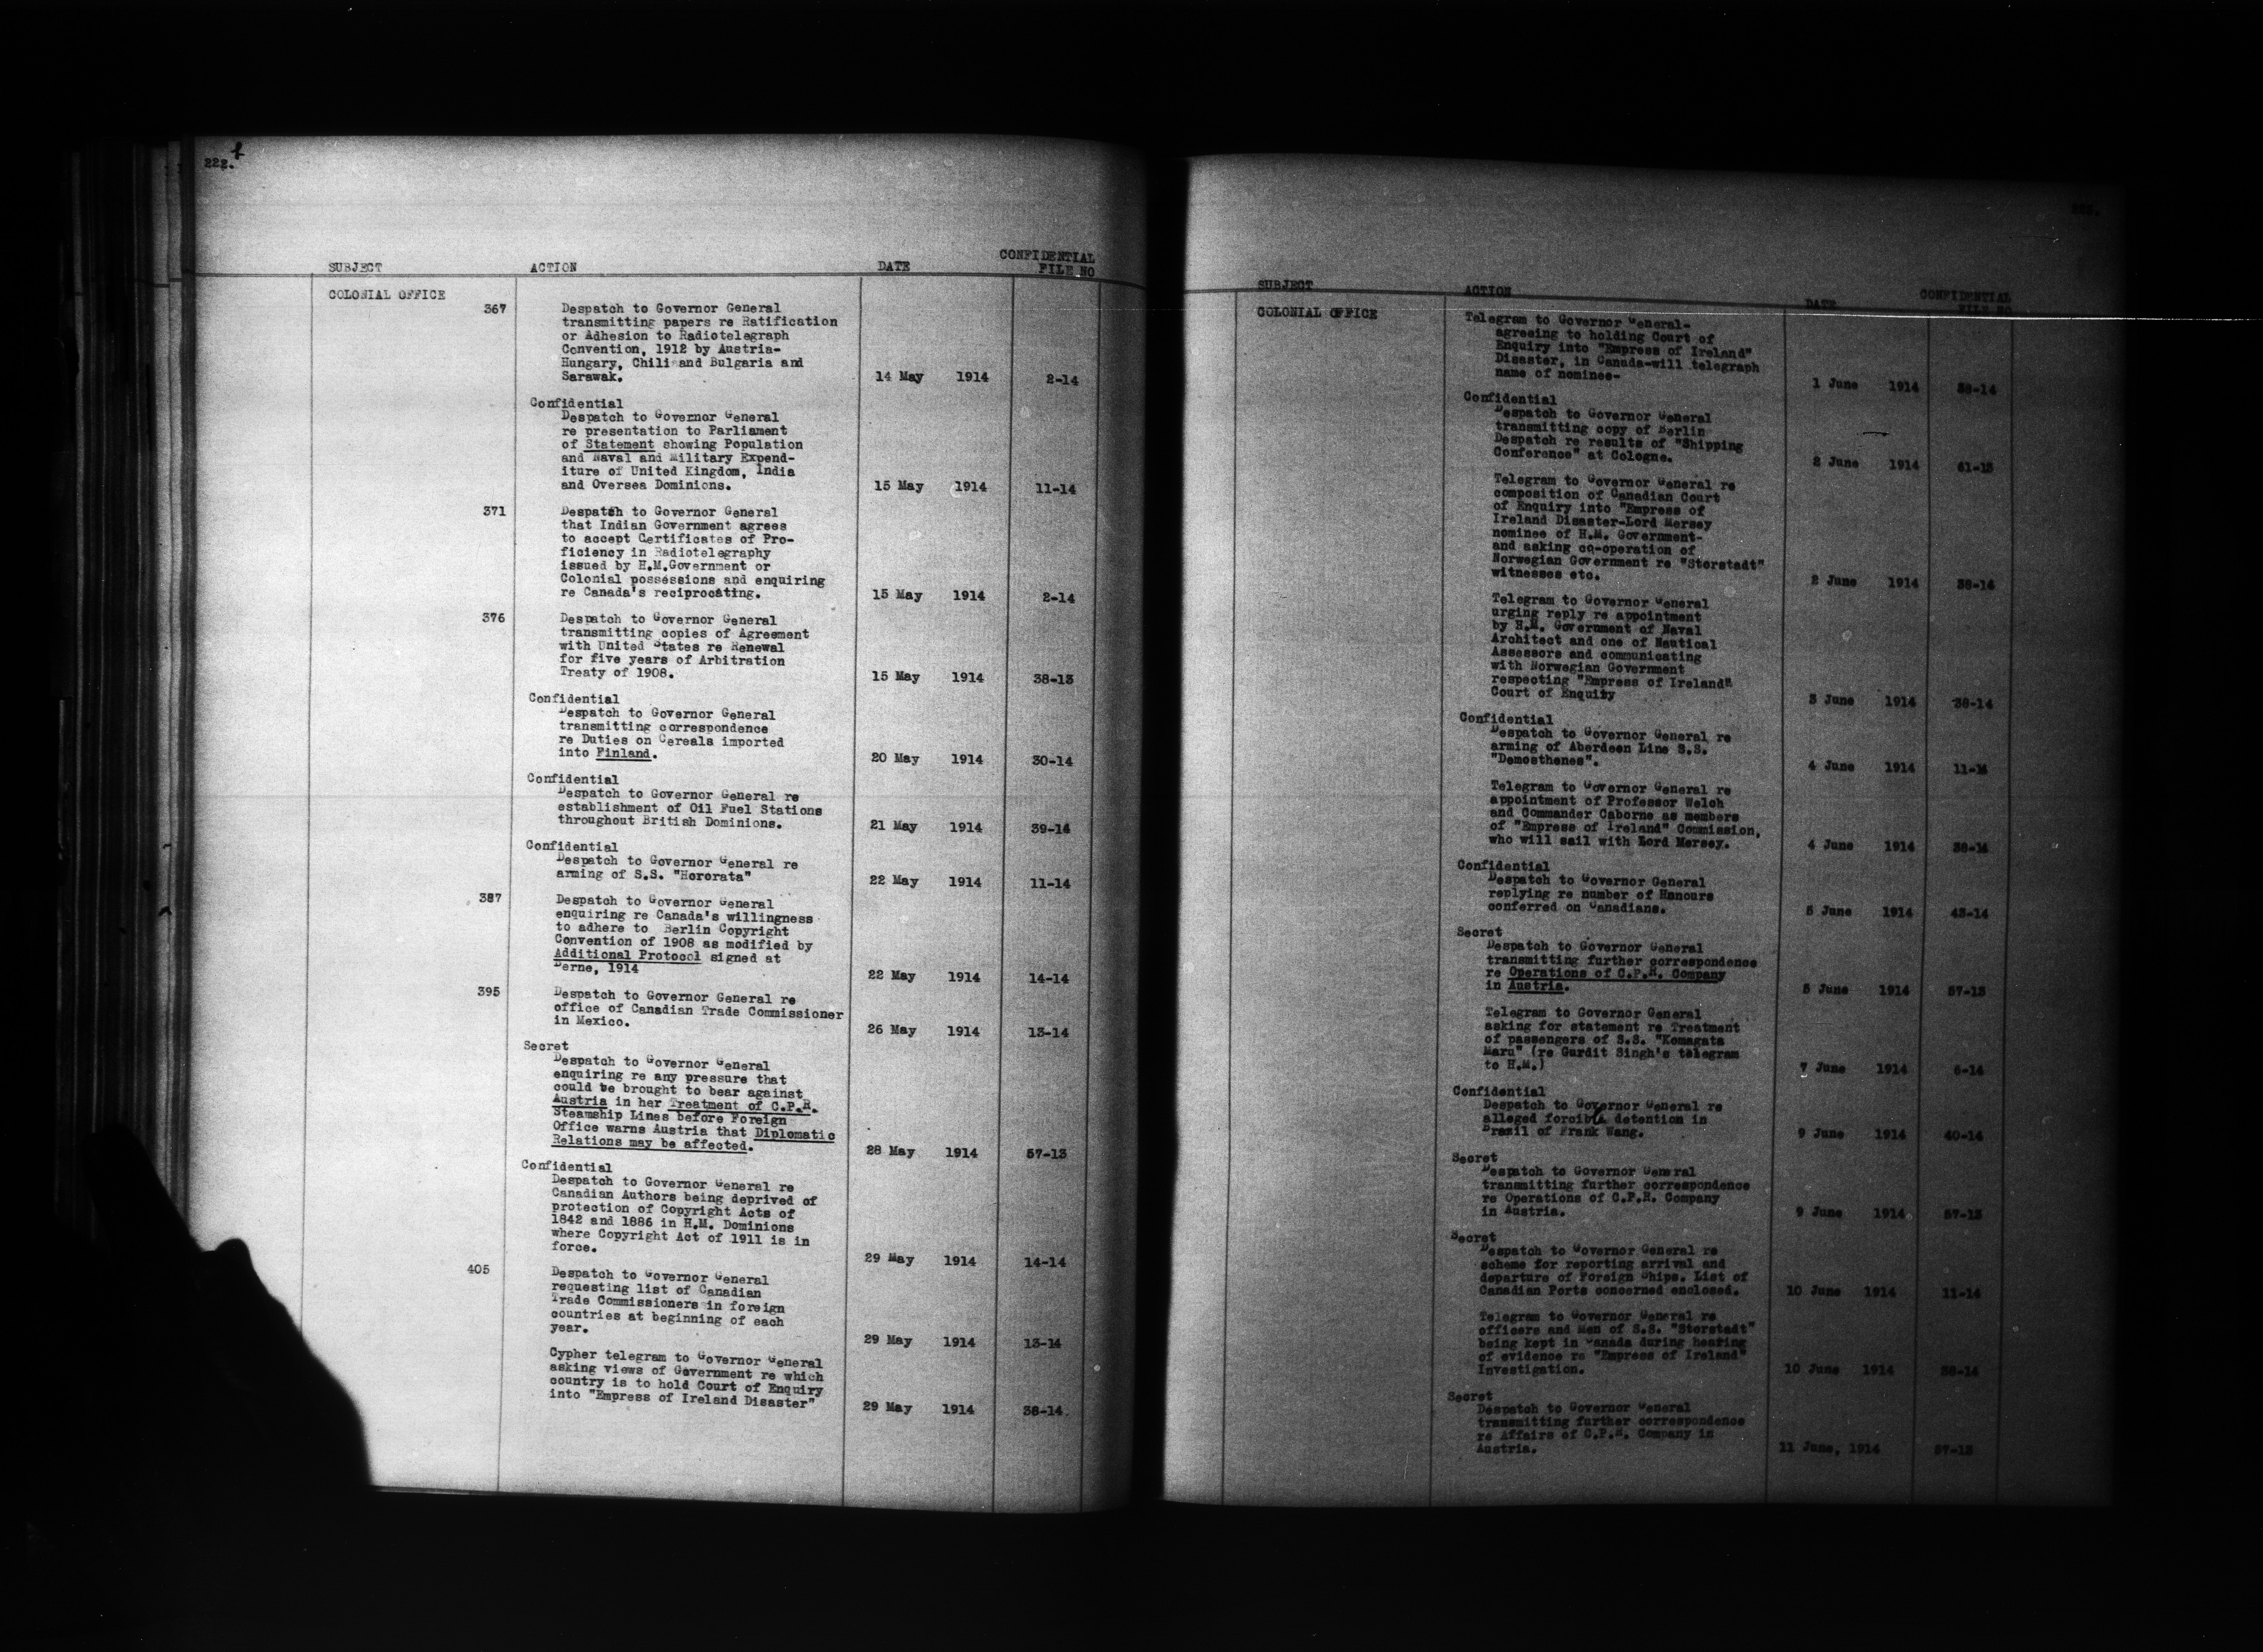 222.
SUBJECT ACTION DATE CONFIDENTIAL
FILE NO
COLONIAL OFFICE
367 Despatch to Governor General
transmitting papers re Ratification
or Adhesion to Radiotelegraph
Convention, 1912 by Austria-
Hungary, Chili and Bulgaria and
Sarawak. 14 May 1914 2-14
Confidential
Despatch to Governor General
re presentation to Parliament
of Statement showing Population
and Naval and Military Expend-
iture of United Kingdom, India
and Oversea Dominions. 15 May 1914 11-14
371 Despatch to Governor General
that Indian Government agrees
to accept Certificates of Pro-
ficiency in Radiotelegraphy
issued by H.M.Government or
Colonial possessions and enquiring
re Canada's reciprocating. 15 May 1914 2-14
376 Despatch to Governor General
transmitting copies of Agreement
with United States re Renewal
for five years of Arbitration
Treaty of 1908. 15 May 1914 38-13
Confidential
Despatch to Governor General
transmitting correspondence
re Duties on Cereals imported
into Finland. 20 May 1914 30-14
Confidential
Despatch to Governor General re
establishment of Oil Fuel Stations
throughout British Dominions. 21 May 1914 39-14
Confidential
Despatch to Governor General re
arming of S.S. "Hororata" 22 May 1914 11-14
387 Despatch to Governor General
enquiring re Canada's willingness
to adhere to Berlin Copyright
Convention of 1908 as modified by
Additional Protocol signed at
Berne, 1914 22 May 1914 14-14
395 Despatch to Governor General re
office of Canadian Trade Commissioner
in Mexico. 26 May 1914 13-14
Secret
Despatch to Governor General
enquiring re any pressure that
could be brought to bear against
Austria in her Treatment of C.P.R.
Steamship Lines before Foreign
Office warns Austria that Diplomatic
Relations may be affected. 28 May 1914 57-13
Confidential
Despatch to Governor General re
Canadian Authors being deprived of
protection of Copyright Acts of
1842 and 1886 in H.M. Dominions
where Copyright Act of 1911 is in
force. 29 May 1914 14-14
405 Despatch to Governor General
requesting list of Canadian
Trade Commissioners in foreign
countries at beginning of each
year. 29 May 1914 13-14
Cypher telegram to Governor General
asking views of Government re which
country is to hold Court of Enquiry
into "Empress of Ireland Disaster" 29 May 1914 38-14.
SUBJECT ACTION DATE CONFIDENTIAL
FILE NO
COLONIAL OFFICE
Telegram to Governor General-
agreeing to holding Court of
Enquiry into "Empress of Ireland"
Disaster, in Canada-will telegraph
name of nominee- 1 June 1914 38-14
Confidential
Despatch to Governor General
transmitting copy of Berlin
Despatch re results of "Shipping
Conference" at Cologne. 2 June 1914 61-13
Telegram to Governor General re
composition of Canadian Court
of Enquiry into "Empress of
Ireland Disaster-Lord Mersey
nominee of H.M. Government-
and asking co-operation of
Norwegian Government re "Storstadt"
witnesses etc. 2 June 1914 38-14
Telegram to Governor General
urging reply re appointment
by H.M. Government of Naval
Architect and one of Nautical
Assessors and communicating
with Norwegian Government
respecting "Empress of Ireland"
Court of Enquiry 3 June 1914 38-14
Confidential
Despatch to Governor General re
arming of Aberdeen Line S.S.
"Demosthenes". 4 June 1914 11-14
Telegram to Governor General re
appointment of Professor Welch
and Commander Caborne as members
of "Empress of Ireland" Commission,
who will sail with Lord Mersey. 4 June 1914 38-14
Confidential
Despatch to Governor General
replying re number of Honours
conferred on Canadians. 5 June 1914 43-14
Secret
Despatch to Governor General
transmitting further correspondence
re Operations of C.P.R. Company
in Austria. 5 June 1914 57-13
Telegram to Governor General
asking for statement re Treatment
of passengers of S.S. "Komagata
Maru" (re Gurdit Singh's telegram
to H.M.) 7 June 1914 6-14
Confidential
Despatch to Governor General re
alleged forcible detention in
Brazil of Frank Wang. 9 June 1914 40-14
Secret
Despatch to Governor General
transmitting further correspondence
re Operations of C.P.R. Company
in Austria. 9 June 1914 57-13
Secret
Despatch to Governor General re
scheme for reporting arrival and
departure of Foreign Ships. List of
Canadian Ports concerned enclosed. 10 June 1914 11-14
Telegram to Governor General re
officers and Men of S.S. "Storstadt"
being kept in Canada during hearing
of evidence re "Empress of Ireland"
Investigation. 10 June 1914 38-14
Secret
Despatch to Governor General
transmitting further correspondence
re Affairs of C.P.R. Company in
Austria. 11 June, 1914 57-13